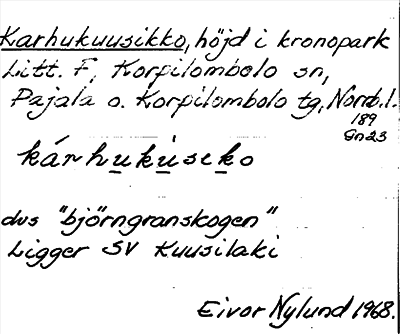 Karhukuusikko, höjd i kronopark
Litt. F, Korpilombolo sn,
Pajala o. Korpilombolo tg, Norrb. l.
189
Gn23
kárhukúsiko
dvs "björngranskogen"
Ligger SV Kuusilaki
Eivor Nylund 1968.